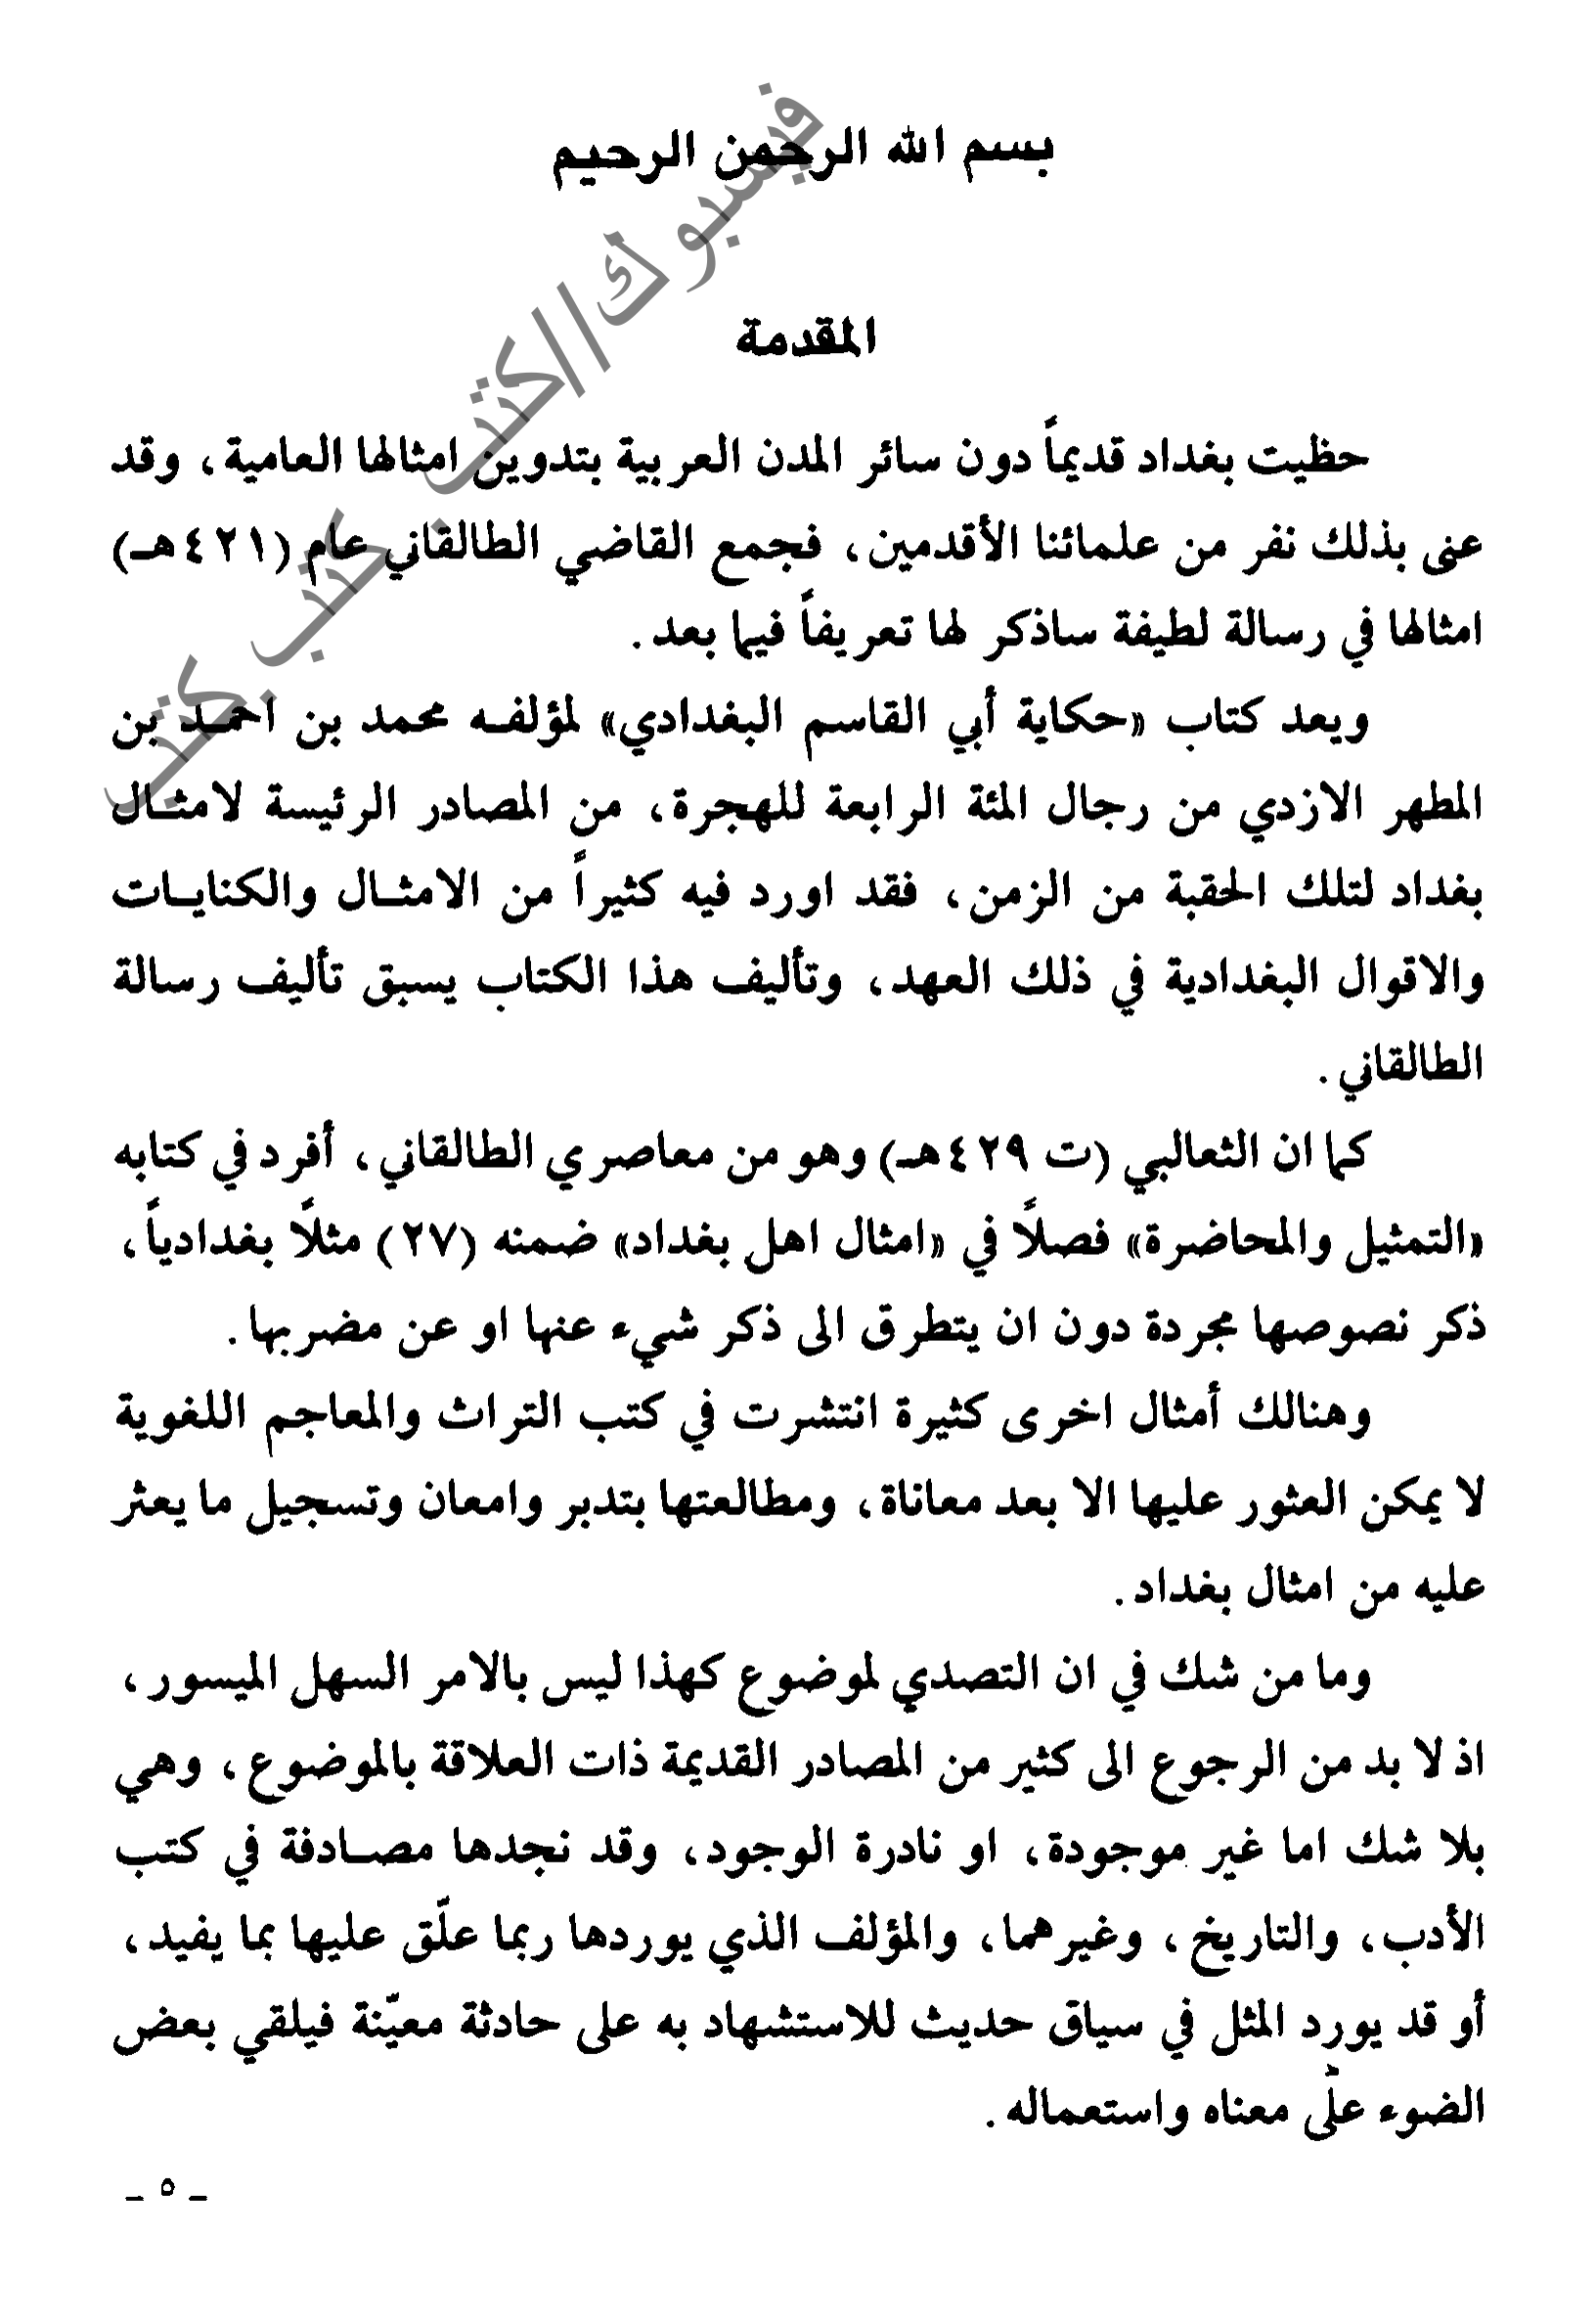 بسم الله الرحمن الرحيم
المقدمة
حظيت بغداد قديماً دون سائر المدن العربية بتدوين امثالها العامية، وقد
عنى بذلك نفر من علمائنا الأقدمين، فجمع القاضي الطالقاني عام (٤٢١هـ)
امثالها في رسالة لطيفة ساذكر لها تعريفاً فيما بعد.
ويعد كتاب «حكاية أبي القاسم البغدادي» لمؤلفه محمد بن احمد بن
المطهر الازدي من رجال المئة الرابعة للهجرة، من المصادر الرئيسة لامثال
بغداد لتلك الحقبة من الزمن، فقد اورد فيه كثيراً من الامثال والكنايات
والاقوال البغدادية في ذلك العهد، وتأليف هذا الكتاب يسبق تأليف رسالة
الطالقاني.
كما ان الثعالبي (ت ٤٢٩هـ) وهو من معاصري الطالقاني، أفرد في كتابه
«التمثيل والمحاضرة» فصلاً في «امثال اهل بغداد» ضمنه (٢٧) مثلاً بغدادياً،
ذكر نصوصها مجردة دون ان يتطرق الى ذكر شيء عنها او عن مضربها.
وهنالك أمثال اخرى كثيرة انتشرت في كتب التراث والمعاجم اللغوية
لا يمكن العثور عليها الا بعد معاناة، ومطالعتها بتدبر وامعان وتسجيل ما يعثر
عليه من امثال بغداد.
وما من شك في ان التصدي لموضوع كهذا ليس بالامر السهل الميسور،
اذ لا بد من الرجوع الى كثير من المصادر القديمة ذات العلاقة بالموضوع، وهي
بلا شك اما غير موجودة، او نادرة الوجود، وقد نجدها مصادفة في كتب
الأدب، والتاريخ، وغيرهما، والمؤلف الذي يوردها ربما علّق عليها بما يفيد،
أو قد يورد المثل في سياق حديث للاستشهاد به على حادثة معيّنة فيلقي بعض
الضوء على معناه واستعماله.
ـ ٥ ـ
فيسبوك//كتب. كتب. كتب